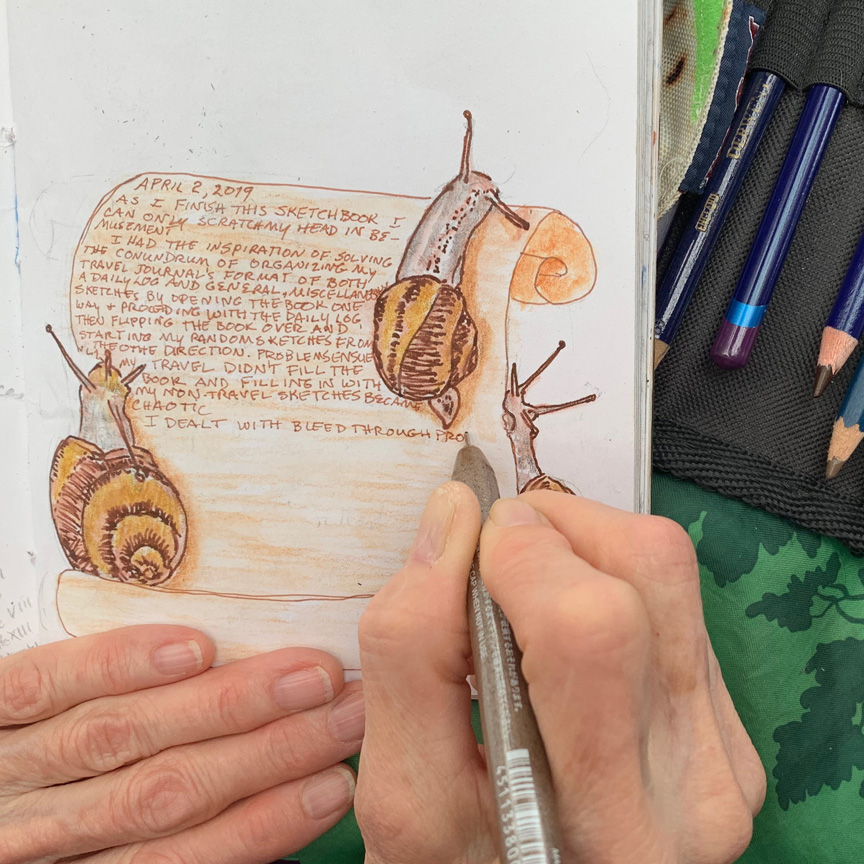 APRIL 2, 2019
AS I FINISH THIS SKETCHBOOK I
CAN ONLY SCRATCH MY HEAD IN BE-
MUSEMENT.
I HAD THE INSPIRATION OF SOLVING
THE CONUNDRUM OF ORGANIZING MY
TRAVEL JOURNAL'S FORMAT OF BOTH
A DAILY LOG AND GENERAL, MISCELLANEOUS
SKETCHES BY OPENING THE BOOK ONE
WAY & PROCEEDING WITH THE DAILY LOG
THEN FLIPPING THE BOOK OVER AND
STARTING MY RANDOM SKETCHES FROM
THE OTHE DIRECTION. PROBLEMS ENSUE
MY TRAVEL DIDN'T FILL THE
BOOK AND FILLING IN WITH
MY NON-TRAVEL SKETCHES BECAME
CHAOTIC
I DEALT WITH BLEED THROUGH PRO
ENGLAND